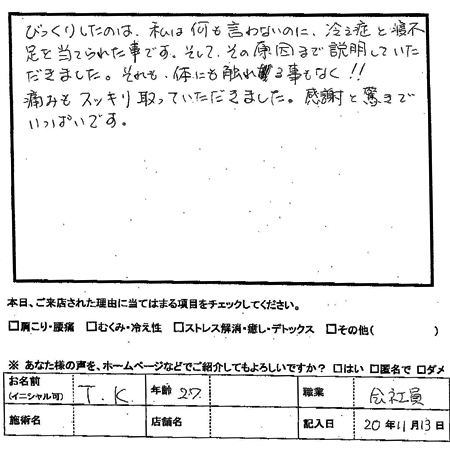 びっくりしたのは、私は何も言わないのに、冷え症と寝不
足と当てられた事です。そして、その原因まで説明していた
だきました。それも、体にも触れる事もなく!!
痛みもスッキリ取っていただきました。感謝と驚きで
いっぱいです。
本日、ご来店された理由に当てはまる項目をチェックしてください。
□肩こり・腰痛 □むくみ・冷え性 □ストレス解消・癒し・デトックス □その他( )
※ あなた様の声を、ホームページなどでご紹介してもよろしいですか? □はい □匿名で □ダメ
お名前 (イニシャル可) T.K. 年齢 27 職業 会社員
施術名 店舗名 記入日 20年11月13日